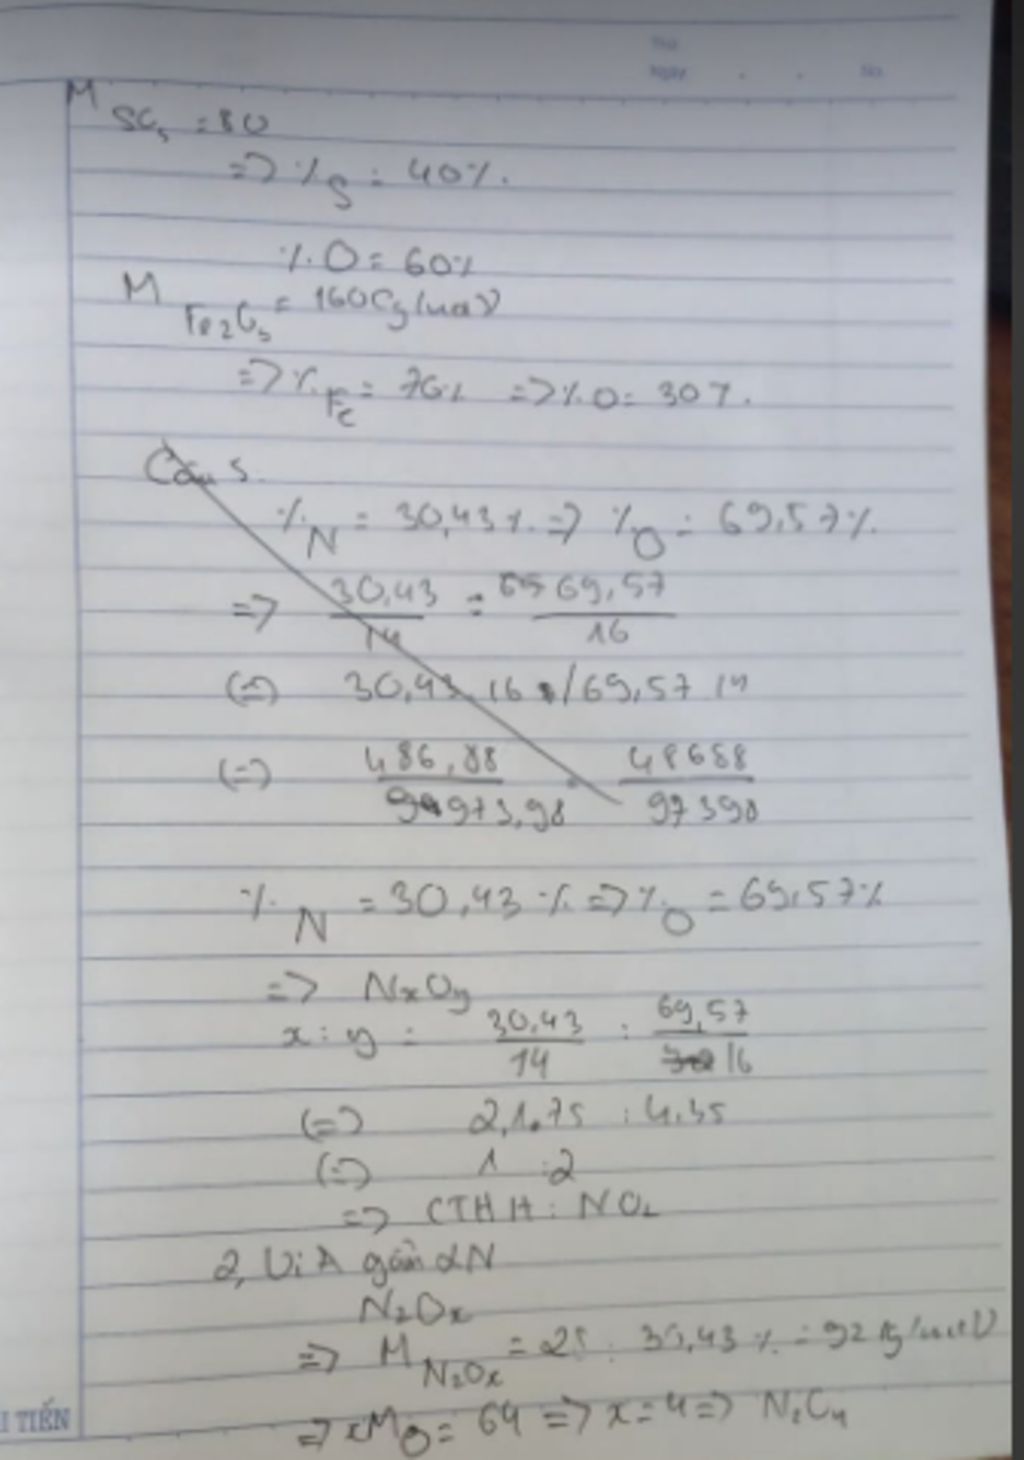 Thứ
Ngày . . No.
M SO₃ = 80
=> % S = 40%.
% O = 60%
M Fe₂O₃ = 160 (g/mol)
=> % Fe = 70% => % O = 30%.
Câu 5.
% N = 30,43% => % O = 69,57%.
=> 30,43/14 = 69,57/16
(=) 30,43 16 /69,57 14
(=) 486,88/973,98 = 48688/97398
% N = 30,43 % => % O = 69,57%
=> NxOy
x : y = 30,43/14 : 69,57/16
(=) 2,1.75 : 4,35
(=) 1 :2
=> CTHH : NO₂
2, Vì A gồm 2N
N₂Ox
=> M N₂Ox = 28 : 30,43 % = 92 (g/mol)
=> xMO = 64 => x = 4 => N₂O₄
I TIẾN